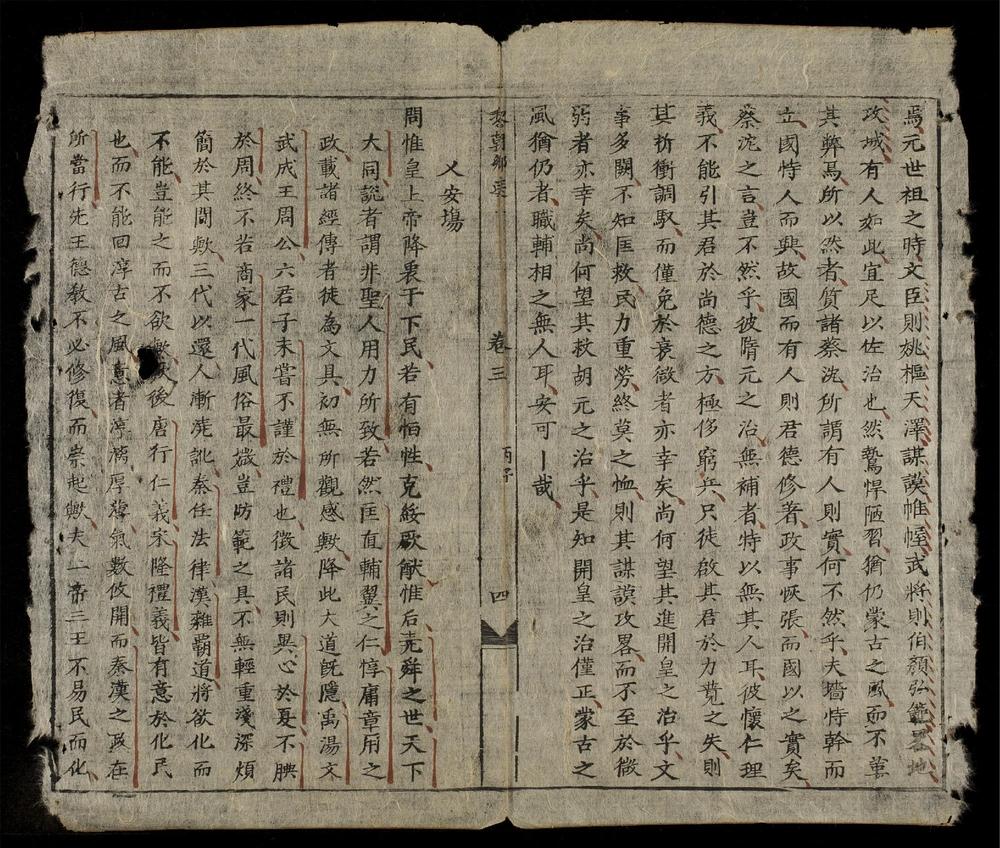 焉元世祖之時文臣則姚樞天澤謀謨帷幄武將則伯顏弘畧地
攻城有人如此宜足以佐治也然鷙悍陋習猶仍蒙古之風而不革
其弊焉所以然者質諸蔡沈所謂有人則實何不然乎夫墻恃幹而
立國恃人而興故國而有人則君德修著政事恢張而國以之實矣
蔡沈之言豈不然乎彼隋元之治無補者特以無其人耳彼懷仁理
義不能引其君於尚德之方極侈窮兵只徒啟其君於力競之失則
其折衝調馭而僅免於衰微者亦幸矣尚何望其進開皇之治乎文
事多闕不知匡救民力重勞終莫之恤則其謀謨攻畧而不至於微
弱者亦幸矣尚何望其救胡元之治乎是知開皇之治僅正蒙古之
風猶仍者職輔相之無人耳安可哉
黎朝鄉選 卷三 丙子 四
乂安塲
問惟皇上帝降衷于下民若有恒性克綏厥猷惟后堯舜之世天下
大同説者謂非聖人用力所致若然匡直輔翼之仁惇庸章用之
政載諸經傳者徒為文具初無所觀感歟降此大道既隱禹湯文
武成王周公六君子未嘗不謹於禮也徵諸民則異心於夏不腆
於周終不若商家一代風俗最媺豈防範之具不無輕重淺深煩
簡於其間歟三代以還人漸澆訛秦任法律漢雜霸道將欲化而
不能豈能之而不欲歟後唐行仁義宋隆禮義皆有意於化民
也而不能回淳古之風意者淳漓厚薄氣數攸開而秦漢之政在
所當行先王德教不必修復而崇起歟夫一帝三王不易民而化